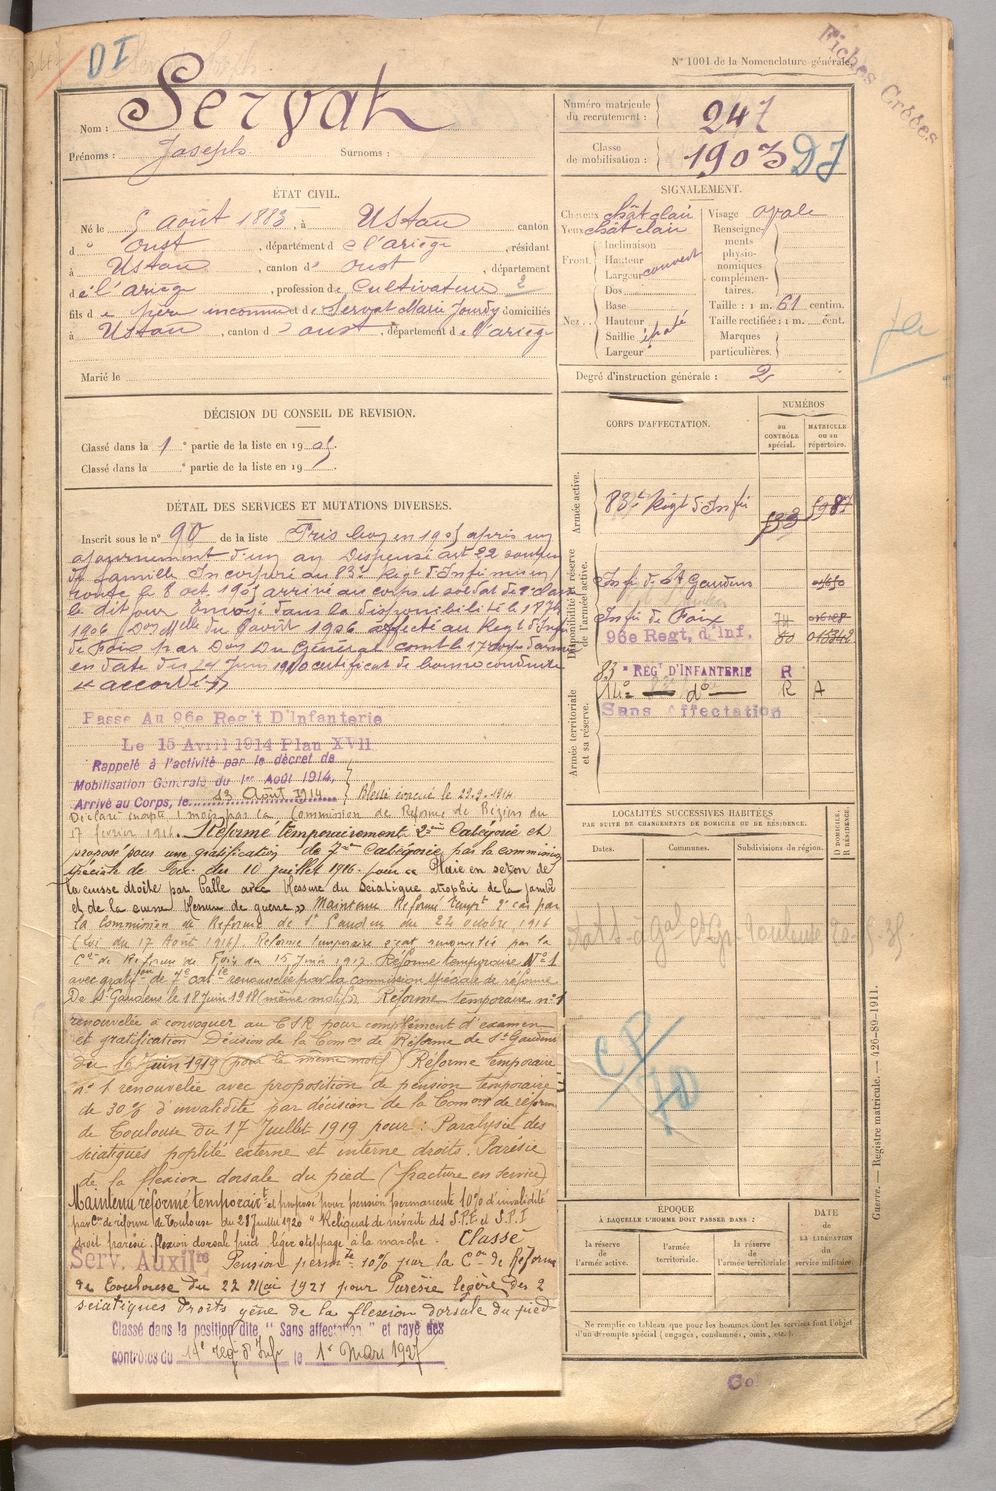 D I
N° 1001 de la Nomenclature générale.
Fiches Créées
Nom : Servat
Prénoms : Joseph Surnoms :
Numéro matricule du recrutement : 247
Classe de mobilisation : 1903 DI
ÉTAT CIVIL.
Né le 5 août 1883, à Ustou canton
d' Oust, département de l'ariège, résidant
à Ustou, canton d' oust, département
de l'ariège, profession de Cultivateur 2
fils de père inconnu et de Servat Marie Jourdy domiciliés
à Ustou, canton d' oust, département de l'ariège
Marié le
SIGNALEMENT.
Cheveux chât clair
Yeux chât clair
Front. Inclinaison
Hauteur
Largeur couvert
Nez. Dos
Base
Hauteur
Saillie épaté
Largeur
Visage ovale
Renseignements physionomiques complémentaires.
Taille : 1 m. 61 centim.
Taille rectifiée : 1 m. cent.
Marques particulières.
Degré d'instruction générale : 2
DÉCISION DU CONSEIL DE REVISION.
Classé dans la 1e partie de la liste en 1905.
Classé dans la e partie de la liste en 19 .
DÉTAIL DES SERVICES ET MUTATIONS DIVERSES.
Inscrit sous le n° 90 de la liste Pris bon en 1905 après un
ajournement d'un an Dispensé art 22 soutien
de famille Incorporé au 83e Régt d'Infie mis en
route le 8 oct. 1905 arrivé au corps et soldat de 2e classe
le dit jour Envoyé dans la disponibilité le 18
1906 affecté au Regt d'Infie
de Foix par Don Du Général comt le 17e corps d'armée
en date du 14 Juin 1910 certificat de bonne conduite
"accordé"
Passe Au 96e Reg't D'Infanterie
Le 15 Avril 1914 Plan XVII
Rappelé à l'activité par le décret de
Mobilisation Générale du 1er Août 1914.
Arrivé au Corps, le 13 Août 1914 Blessé évacué le 22.9.1914
Déclaré inapte 1 mois par la Commission de Réforme de Béziers du
17 février 1916. Réformé temporairement 2ème Catégorie et
proposé pour une gratification de 7ème Catégorie par la commission
spéciale de Foix du 10 juillet 1916. pour "Plaie en séton de
la cuisse droite par balle avec blessure du Sciatique atrophie de la jambe
et de la cuisse blessure de guerre" Maintenu Réformé tempt 2e cat par
la Commission de Réforme de St Gaudens du 24 octobre 1916
(Cir. du 17 Août 1916). Réforme temporaire renouvelée par la
Con de Réforme de Foix du 15 Juin 1917 Réforme temporaire N° 1
avec gratifon de 7e catie renouvelée par la commission spéciale de réforme
De St Gaudens le 18 Juin 1918 (même motif) Réforme temporaire n° 1
renouvelée à convoquer au CSR pour complément d'examen
et gratification Décision de la Comon de Réforme de St Gaudens
du 16 Juin 1919 (pour le même motif) Réforme temporaire
n° 1 renouvelée avec proposition de pension temporaire
de 30% d'invalidité par décision de la Comon de réforme
de Toulouse du 17 Juillet 1919 pour : Paralysie des
sciatiques poplité externe et interne droits. Parésie
de la flexion dorsale du pied (fracture en service)
Maintenu réformé temporairt et proposé pour pension permanente 10% d'invalidité
par Con de réforme de Toulouse du 28 Juillet 1920 "Reliquat de névrite des S.P.E. et S.P.I
droit parésie flexion dorsale pied. léger steppage à la marche. Classé
Serv. Auxilre Pension permte 10% par la Con de Réforme
de Toulouse du 22 Mai 1921 pour Parésie légère des 2
sciatiques droits gêne de la flexion dorsale du pied
Classé dans la position dite "Sans affectation" et rayé des
contrôles du 14e reg d'Infie le 1er Mars 1927
CORPS D'AFFECTATION.
NUMÉROS
au CONTRÔLE spécial.
MATRICULE ou au répertoire.
Armée active.
83e Régt d'Infie 5987
Disponibilité et réserve de l'armée active.
Infie de St Gaudens
Infie de Foix
96e Regt. d'Inf.
Armée territoriale et sa réserve.
83e REGt D'INFANTERIE R
14e do R A
Sans Affectation
LOCALITÉS SUCCESSIVES HABITÉES
PAR SUITE DE CHANGEMENTS DE DOMICILE OU DE RÉSIDENCE.
Dates. Communes. Subdivisions de région. D DOMICILE. R RÉSIDENCE.
Toulouse
CP/70
ÉPOQUE
À LAQUELLE L'HOMME DOIT PASSER DANS :
la réserve de l'armée active.
l'armée territoriale.
la réserve de l'armée territoriale
DATE de LA LIBÉRATION du service militaire.
Ne remplir ce tableau que pour les hommes dont les services font l'objet
d'un décompte spécial (engagés, condamnés, omis, etc.).
Guerre. — Registre matricule. — 426-89-1911.